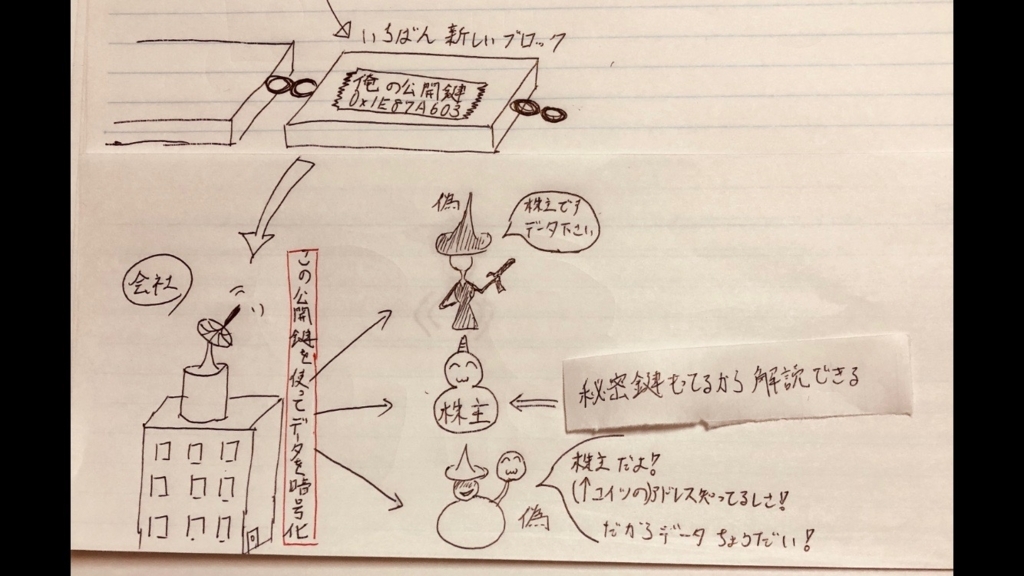 いちばん新しいブロック
俺の公開鍵
0x1E87A603
偽
株主です
データ下さい
会社
この公開鍵を使ってデータを暗号化
株主
秘密鍵もってるから解読できる
株主だよ!
(↑コイツの)アドレス知ってるしさ!
だからデータちょうだい!
偽